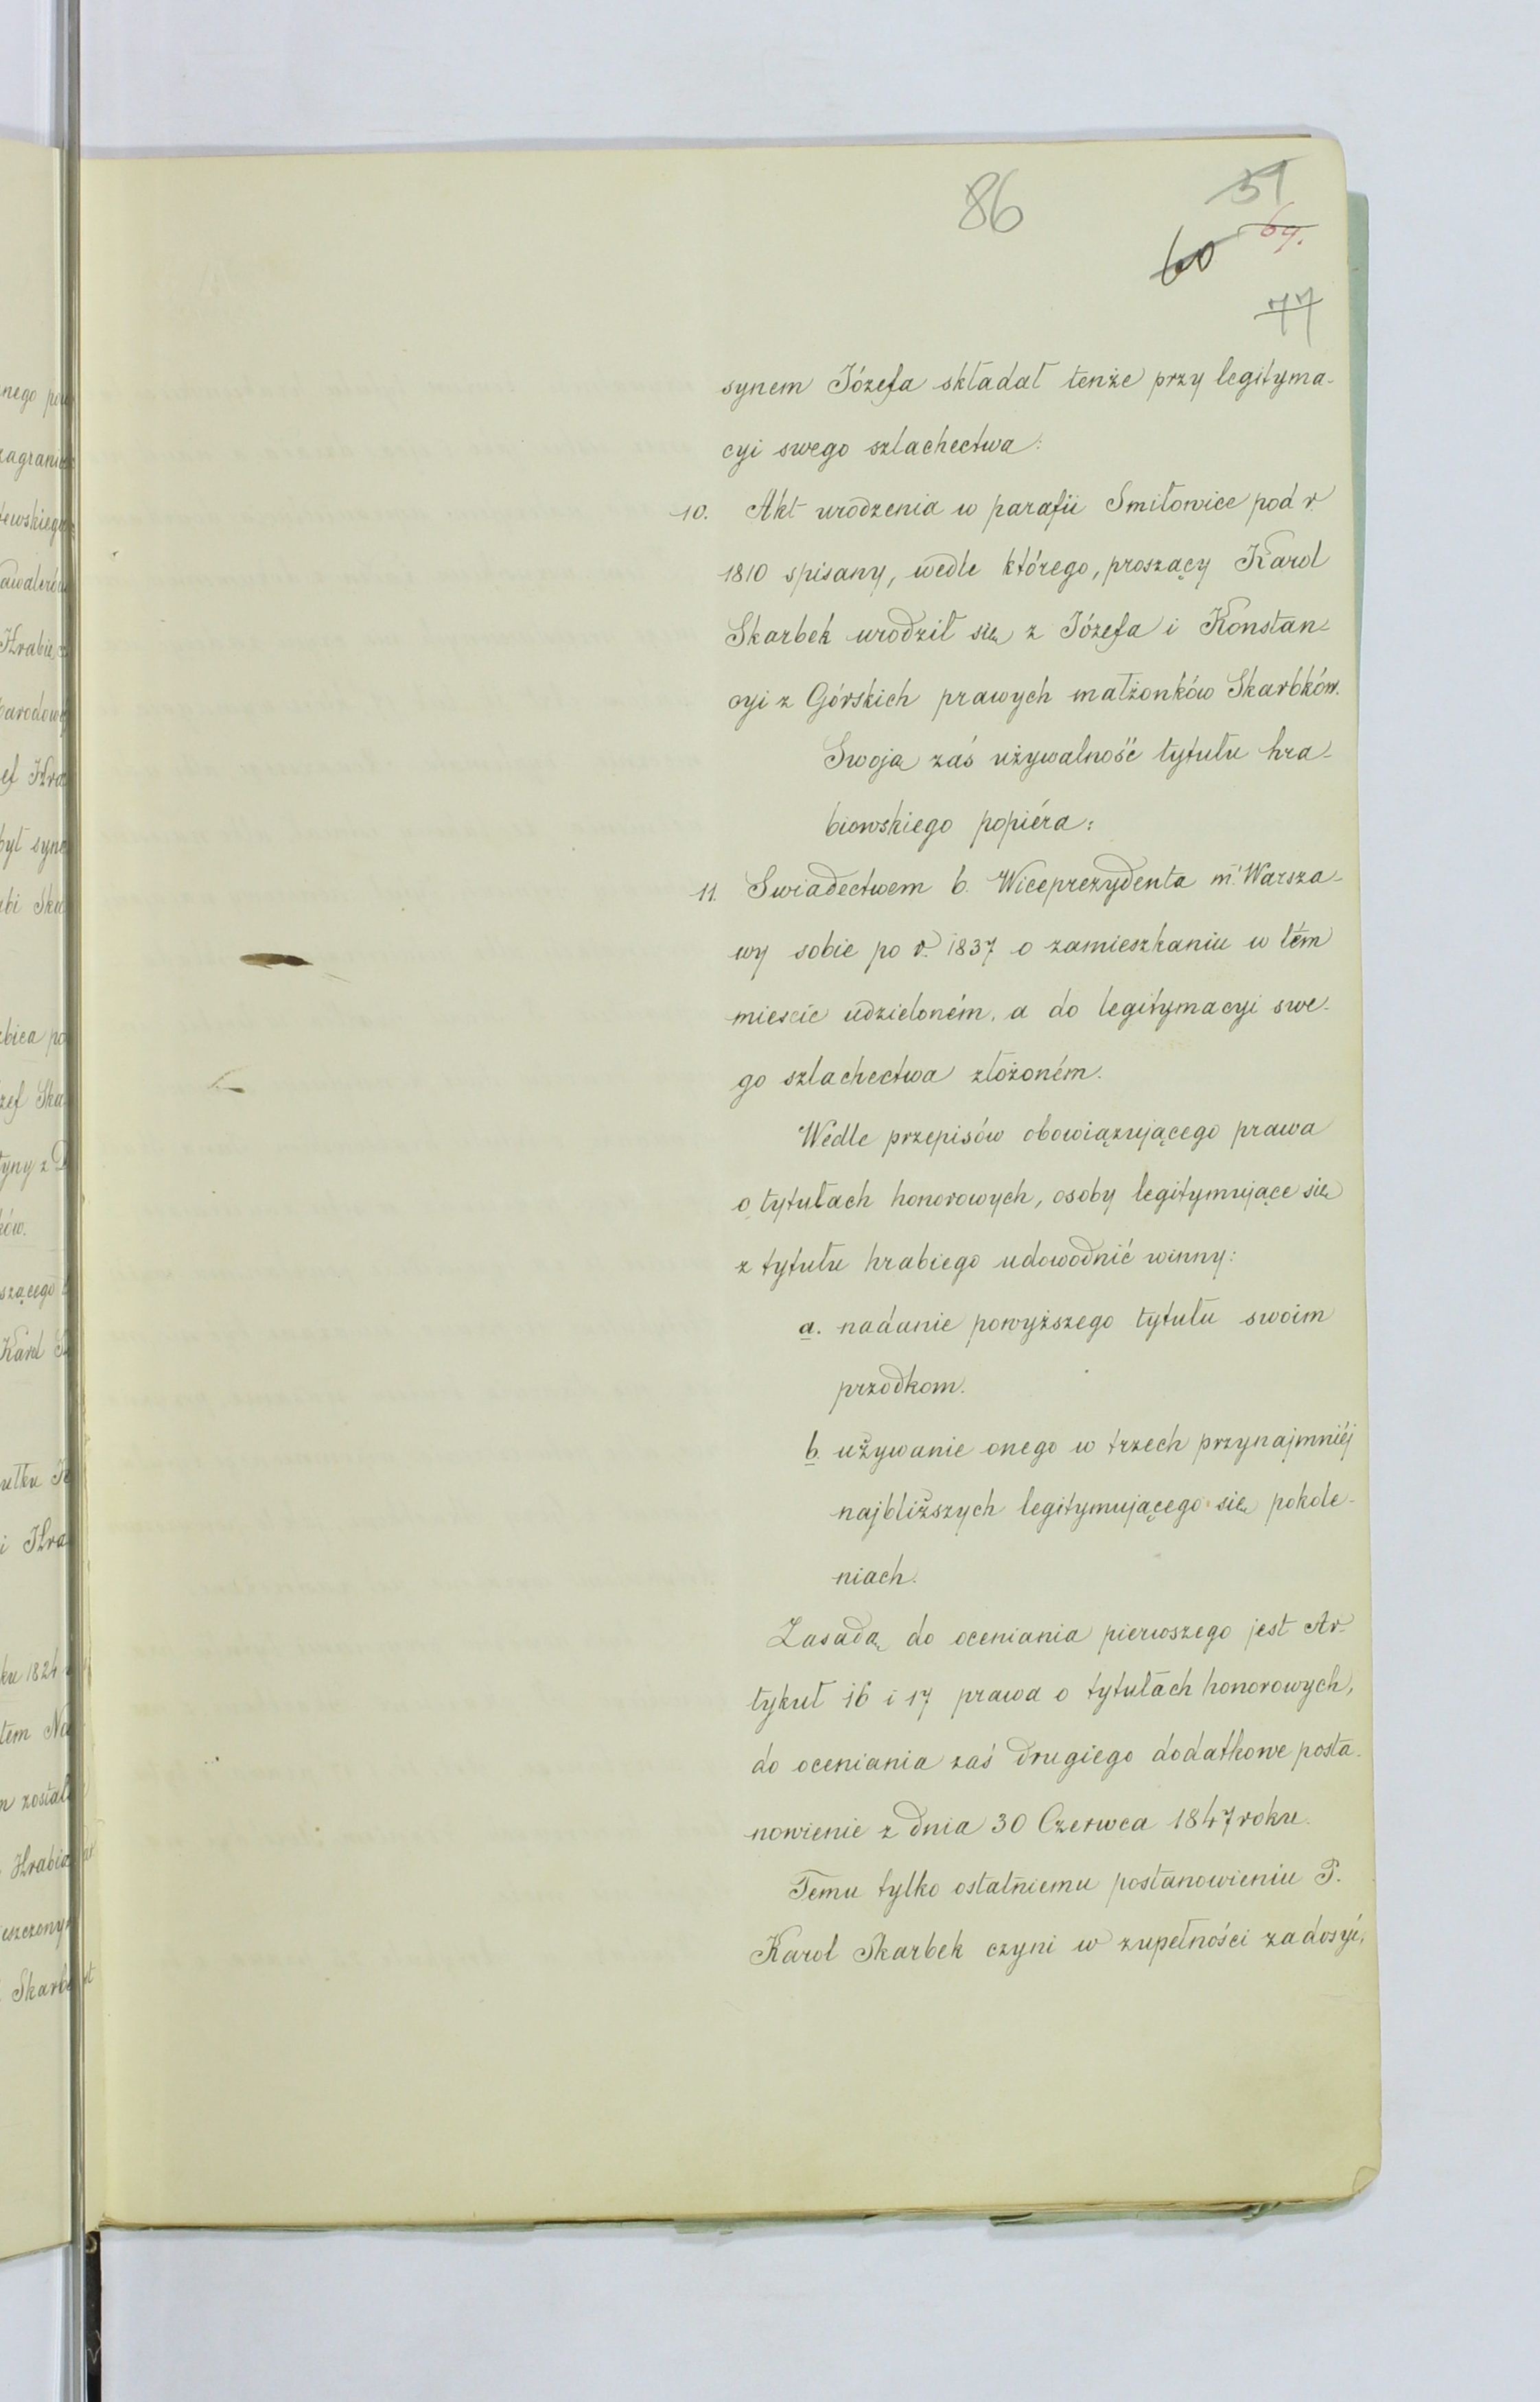 86
59
69.
60
77
synem Józefa składał tenże przy legityma-
cyi swego szlachectwa:
10. Akt urodzenia w parafii Smiłowice pod r.
1810 spisany, wedle którego, proszący Karol
Skarbek urodził się z Józefa i Konstan-
cyi z Górskich prawych małżonków Skarbków.
Swoją zaś używalność tytułu hra-
biowskiego popiéra:
11. Swiadectwem b. Wiceprezydenta m. Warsza-
wy sobie po r. 1837 o zamieszkaniu w tém
miescie udzieloném, a do legitymacyi swe-
go szlachectwa złożoném.
Wedle przepisów obowiązującego prawa
o tytułach honorowych, osoby legitymujące się
z tytułu hrabiego udowodnić winny:
a. nadanie powyższego tytułu swoim
przodkom.
b. używanie onego w trzech przynajmniéj
najbliższych legitymującego się pokole-
niach.
Zasadą do oceniania pierwszego jest Ar-
tykuł 16 i 17 prawa o tytułach honorowych,
do oceniania zaś drugiego dodatkowe posta-
nowienie z dnia 30 Czerwca 1847 roku.
Temu tylko ostatniemu postanowieniu P.
Karol Skarbek czyni w zupełności zadosyć,